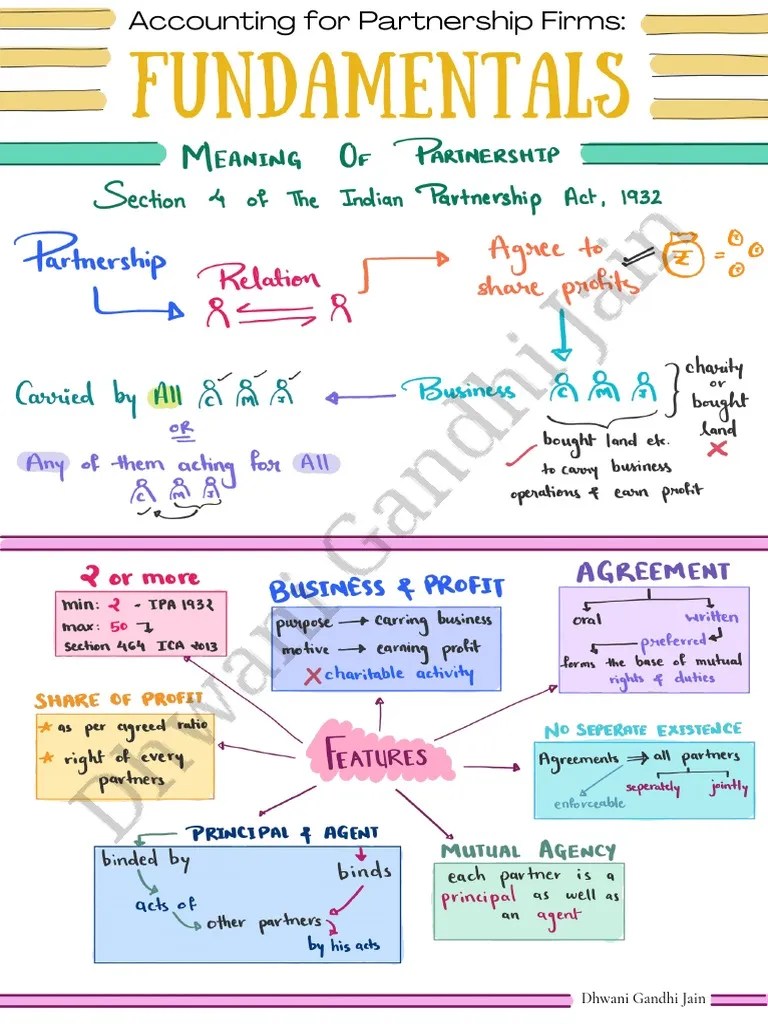 Accounting for Partnership Firms:
FUNDAMENTALS
MEANING OF PARTNERSHIP
Section 4 of The Indian Partnership Act, 1932
Partnership
Relation
Agree to
share profits
₹ =
Business
C M J
charity
or
bought
land
bought land etc.
to carry business
operations & earn profit
Carried by All C M J
OR
Any of them acting for All
C M J
2 or more
min: 2 - IPA 1932
max: 50
Section 464 ICA 2013
BUSINESS & PROFIT
purpose → carring business
motive → earning profit
✗ charitable activity
AGREEMENT
oral written
preferred
forms the base of mutual
rights & duties
SHARE OF PROFIT
as per agreed ratio
right of every
partners
FEATURES
NO SEPERATE EXISTENCE
Agreements ⇒ all partners
seperately jointly
enforceable
PRINCIPAL & AGENT
binded by
acts of
other partners
binds
by his acts
MUTUAL AGENCY
each partner is a
principal as well as
an agent
Dhwani Gandhi Jain
Dhwani Gandhi Jain